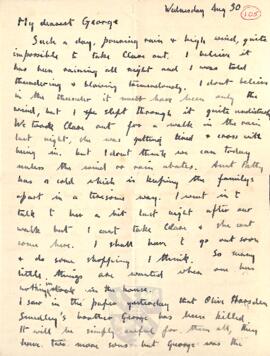 Wednesday Aug 30
105
My dearest George
Such a day, pouring rain & high wind, quite
impossible to take Clare out. I believe it
has been raining all night and I was told
thundering & blowing tremendously. I dont believe
in the thunder it must have been only the
wind, but I slept through it quite
We took Clare out for a walk in the rain
last night, she was getting tired & cross with
being in, but I dont think we can today
unless the wind or rain abates. Aunt Patty
has a cold which is keeping the family
apart in a tiresome way. I went in t
talk t her a bit last night after our
walk but I cant take Clare & she cant
come here. I shall have t go out soon
& do some shopping I think. So many
little things are wanted when one has
nothing in the house.
I saw in the paper yesterday that Olive
brother George has been killed.
It will be simply awful for them all, they
have two more sons but George was the